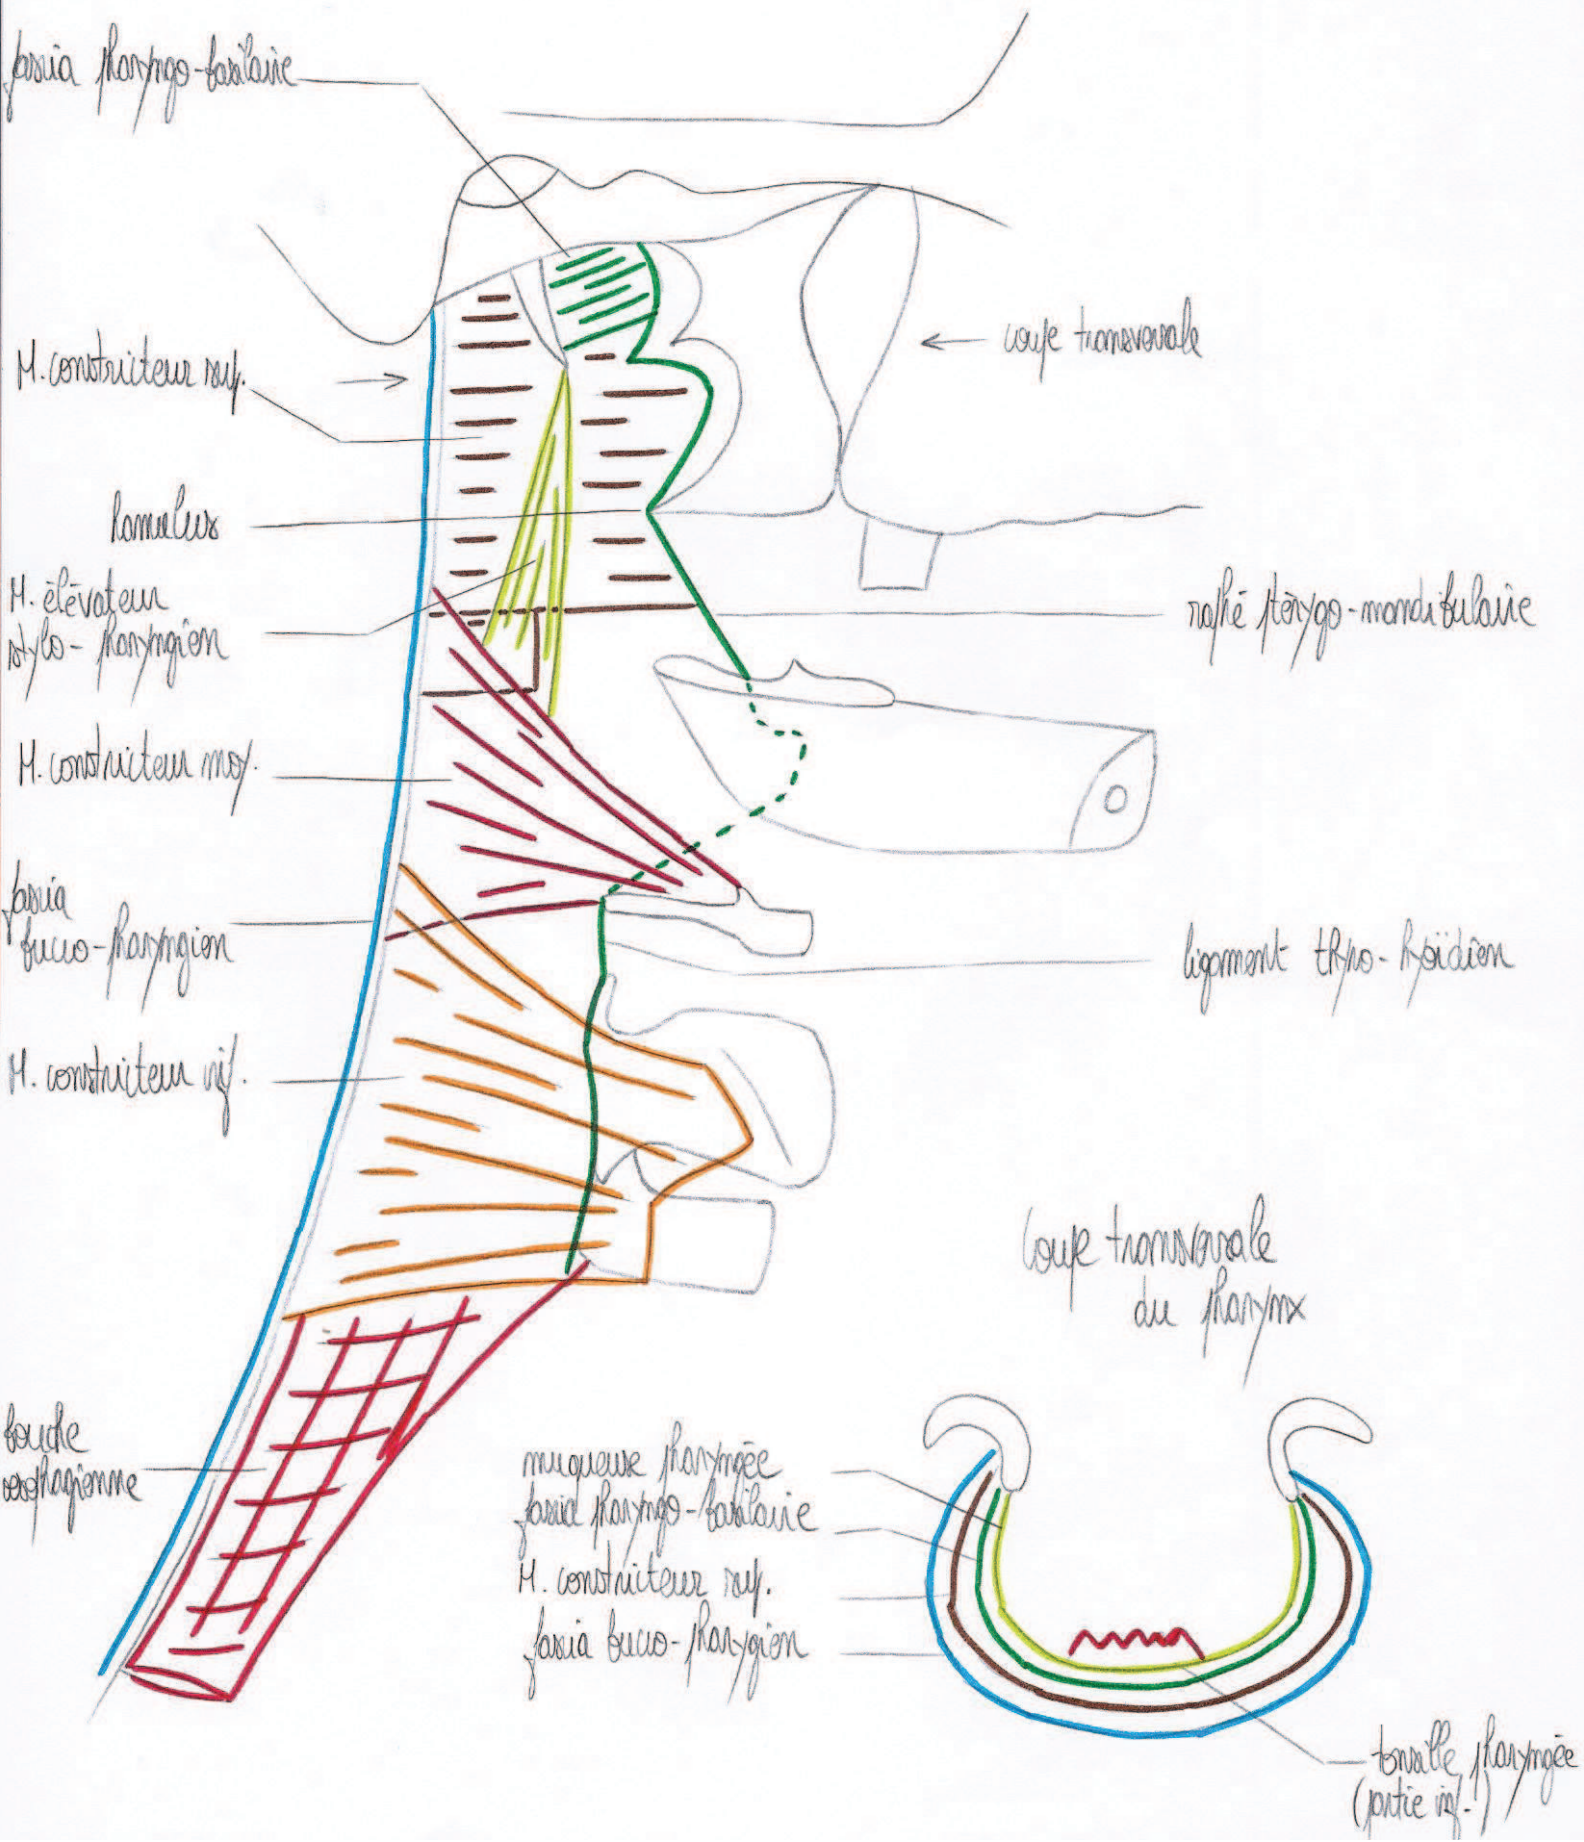 fascia pharyngo-basilaire
coupe transversale
M. constricteur sup.
hamulus
M. élévateur
stylo-pharyngien
raphé ptérygo-mandibulaire
M. constricteur moy.
fascia
bucco-pharyngien
ligament thyro-hyoïdien
M. constricteur inf.
Coupe transversale
du pharynx
bouche
œsophagienne
muqueuse pharyngée
fascia pharyngo-basilaire
M. constricteur sup.
fascia bucco-pharygien
tonsille pharyngée
(partie inf.)